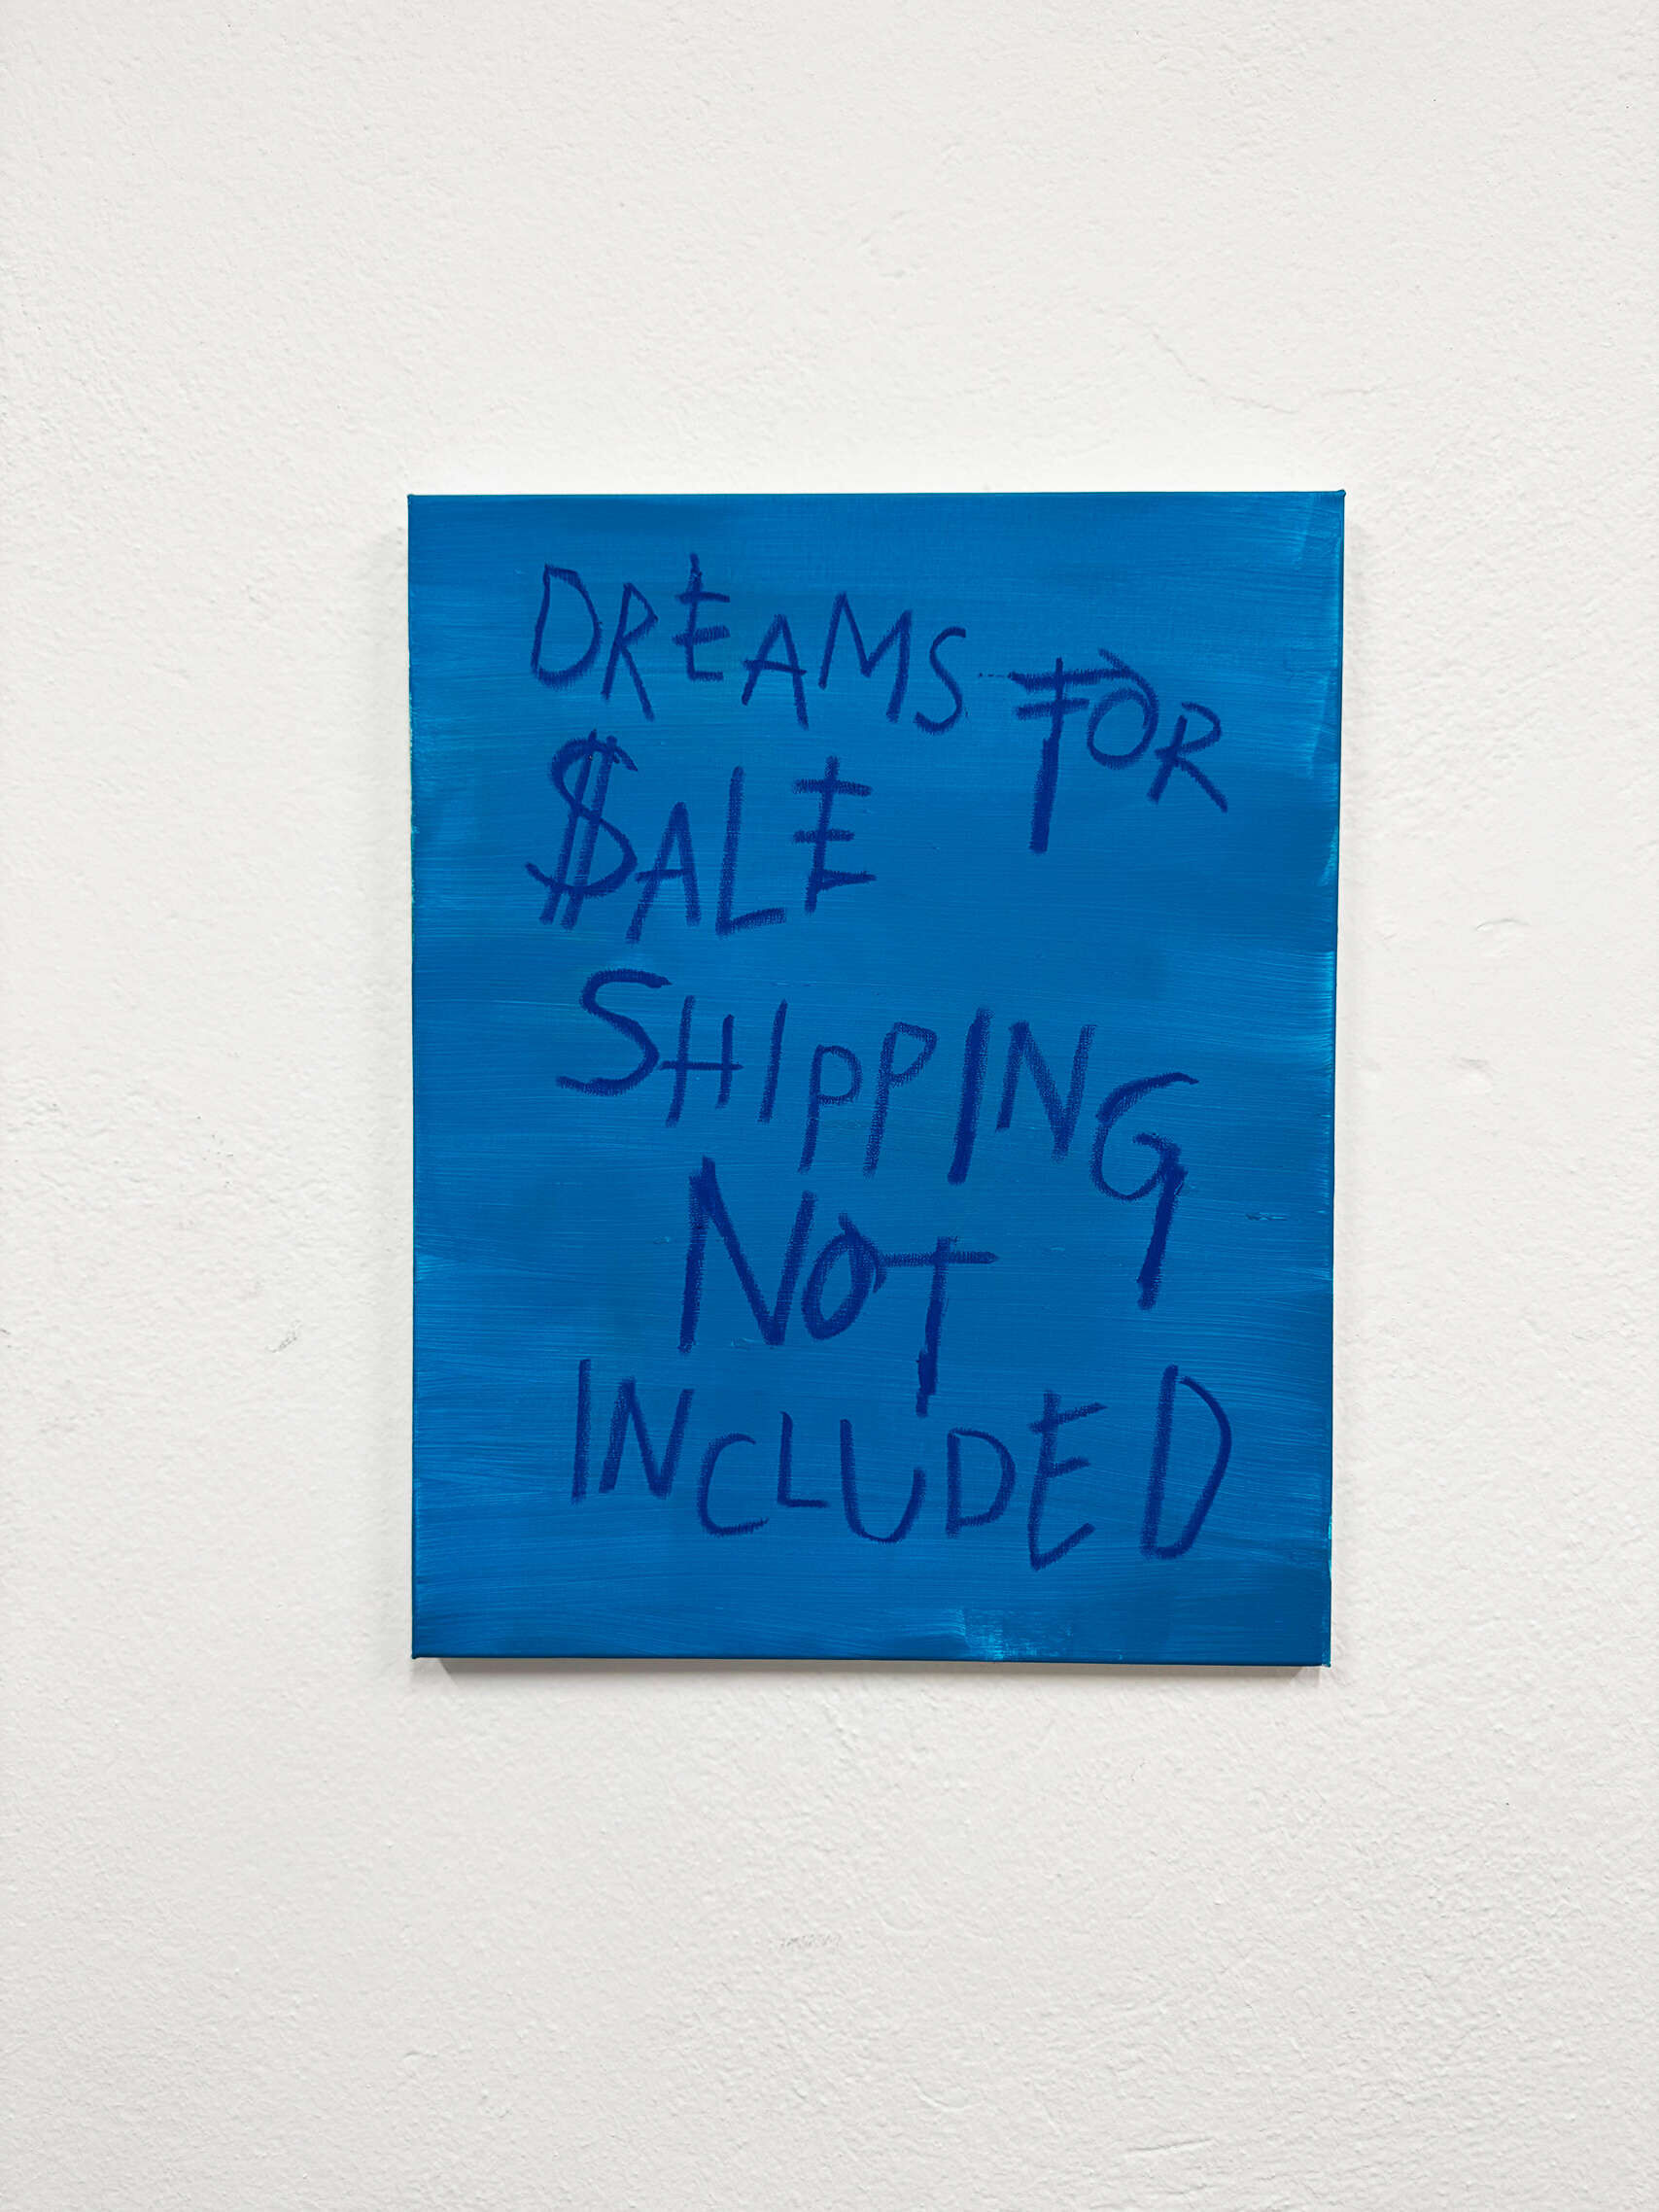 DREAMS FOR
$ALE
SHIPPING
NOT
INCLUDED